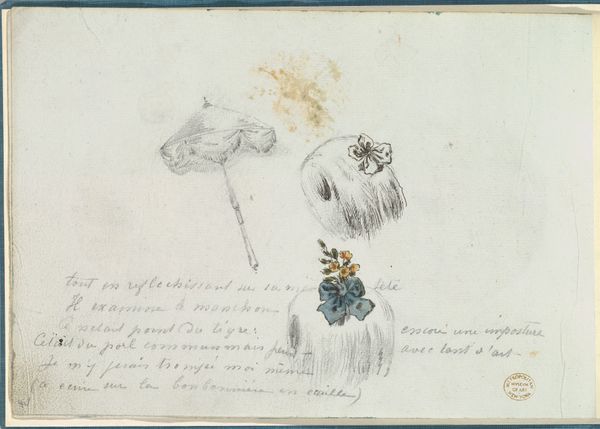 tout en reflechissant sur sa
Il examine le manchon
Ce n'etait point du tigre: encore une imposture
C'etait du poil commun mais avec tant d'art -
Je m'y serais trompé moi même
sur la bonbonnière en écaille)
METROPOLITAN
MUSEUM
OF ART
NEW YORK